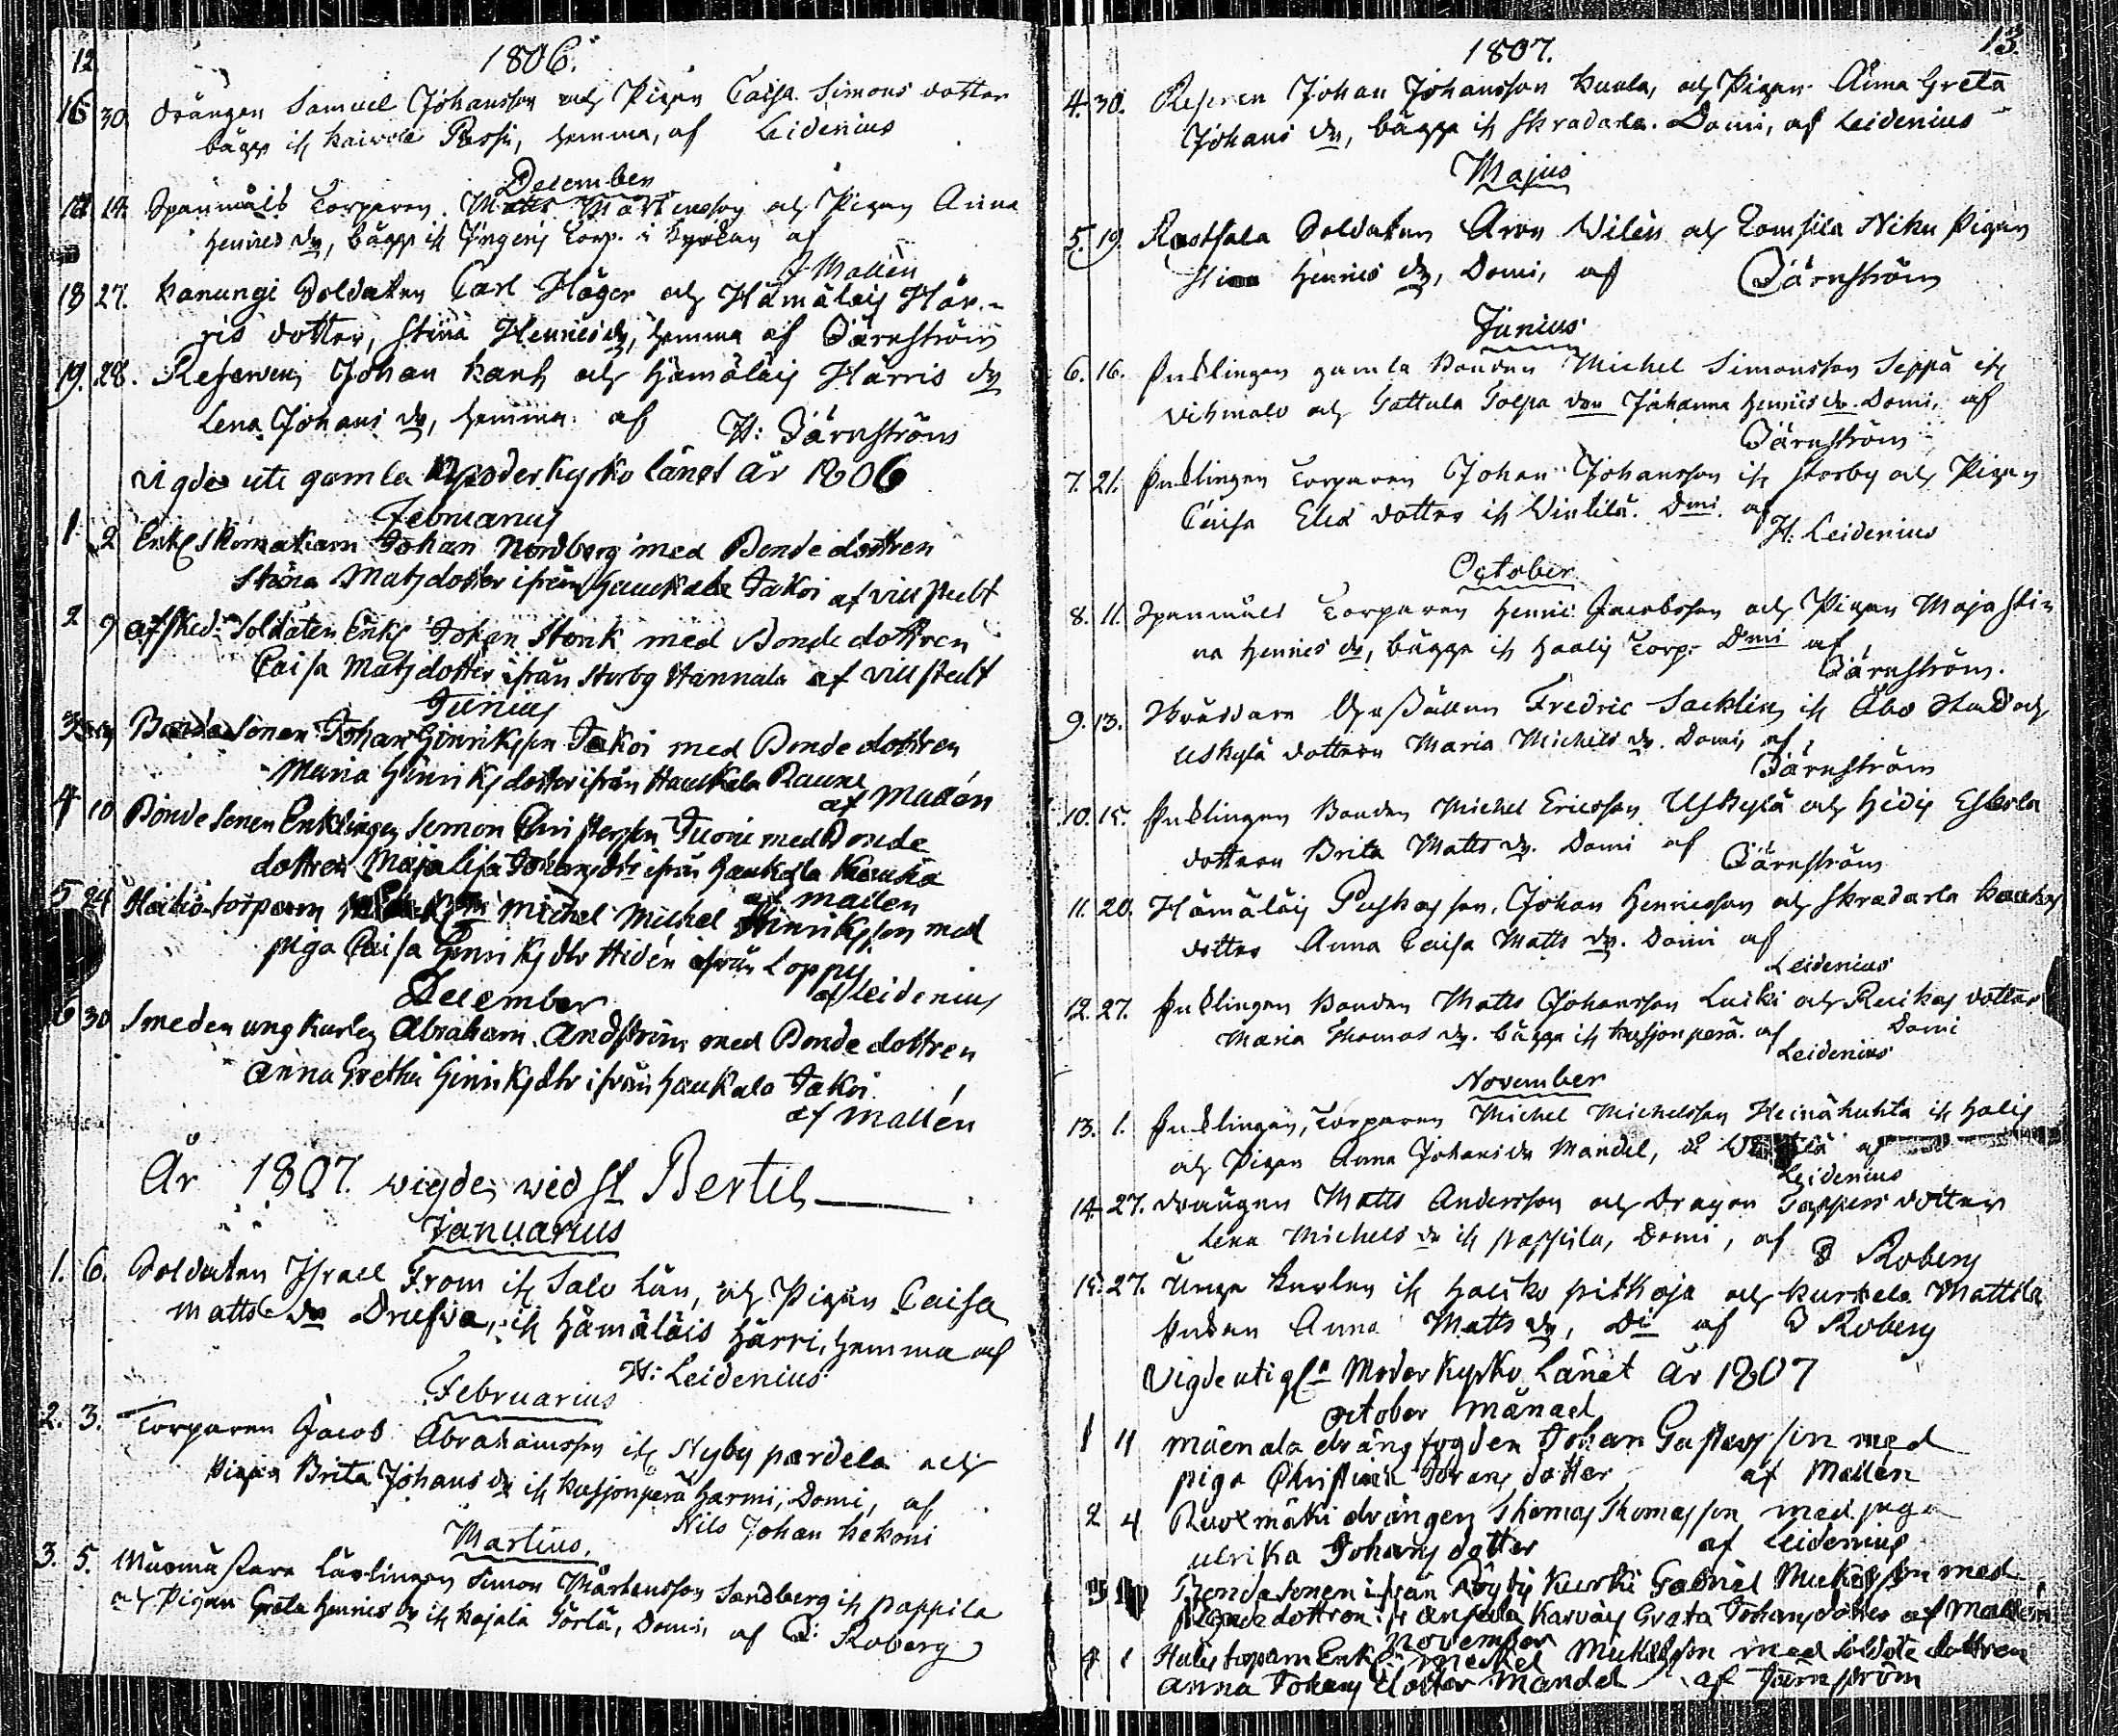 12.
1806.
16 30. Drängen Samuel Johansson och Pigan Caisa Simons dotter
bägge ifr Kaivola Rossi, hemma, af Leidenius
December
17. Spanmåls Torparen Matts Mårtensson och Pigan Anna
Henrics dr, bägge ifr Torp. i Kyrkan af
J Mallén
18 27. Kanungi Soldaten Carl Häger och Hämäläis Här-
ris dotter, Stina Henricsdr, hemma af Järnström
19. 28. Reserven Johan Kank och Hämäläis Härris dr
Lena Johans dr, hemma af H: Järnström
vigde uti gamla Moderkyrko länet År 1806
Februarius
1 2 Enkl Skomakarn Johan Nordberg med Bondedottren
Stina Matsdotter ifrån Haukala Jakoi af villstedt
2 9 afsked: Soldaten Enkl Johan Stork med Bonde dottren
Caisa Matsdotter ifrån Storby Hannala af villstedt
Junius
3 Bondesonen Johan Hinriksson Jakoi med Bonde dottren
Maria Hinriksdotter ifrån Haukala
af Mallén
4 10 Bonde Sonen Enklingen Simon Christersson Tuorie med Bonde
dottren Majalisa Johansdtr ifrån Haukala
af mallén
5 24 torparn Michel Michel Hinriksson med
piga Caisa Hinriksdtr Hidén ifrån Loppy
af Leidenius
December
6 30 Smeden ungkarlen Abraham Andström med Bonde dottren
Anna Gretha Hinriksdtr ifrån Haukala Jakoi
af mallén
År 1807. wigde, wid St Bertils
Januarius
1. 6. Soldaten Israel From ifr Salo Län, och Pigan Caisa
Matts dr Drufva, ifr Hämäläis Härri, hemma af
H: Leidenius
Februarius
2. 3. Torparen Jacob Abrahamsson ifr Nyby pardela och
Pigan Brita Johans dr ifr Kusjonperä Harmi, Domi, af
Nils Johan Kekoni
Martius.
3. 5. Murmästare Lärlingen Simon Mårtensson Sandberg ifr pappila
och Pigan Greta Henrics dr ifr Kajala Sörlä, Domi, af Roberg
1807.
13.
4. 30. Reserven Johan Johansson Kuula, och Pigan Anna Greta
Johans dr, bägge ifr Skradarla. Domi, af Leidenius
Majus
5. 19. Rastsala Soldaten Aron Wilén och Tomsila Niku Pigan
Stina Henrics dr, Domi, af Järnström
Junius
6. 16. Enklingen gamla Bonden Michel Simonsson Seppä ifr
Vihmalo och Tattula Tolpa Johanna Henrics dr. Domi, af
Järnström
7. 21. Enklingen Torparen Johan Johansson ifr Storby och Pigan
Caisa Elias dotter ifr Vintilä. Dmi. af
H. Leidenius
October
8. 11. Spanmåls Torparen Henric Jacobsson och Pigan Maja Sti
na Henrics dr, bägge ifr Haalis Torp. Dmi af
Järnström.
9. 13. Fredric Sacklin, ifr Åbo Stad och
Uskylä dottren Maria Michels dr. Domi, af
Järnström
10. 15. Enklingen Bonden Michel Ericsson Uskylä och Hidis Eskola
dottren Brita Matts dr. Domi af Järnström
11. 20. Hämäläis Puskas son, Johan Henricsson och Skradarla
dotter Anna Caisa Matts dr. Domi af
Leidenius
12. 27. Enklingen Bonden Matts Johansson Luiki och Ruikas dotter
Maria Thomas dr. bägge ifr Kusjonperä. af Domi
Leidenius
November
13. 1. Enklingen, Torparen Michel Michelsson Heinähuhta ifr Halis
och Pigan Anna Johansdr Mandel, af
Leidenius
14. 27. Drängen Matts Andersson och Dragon Tappers dotter
Lena Michels dr ifr pappila, Domi, af D Roberg
15. 27. Unga Karlen ifr Haliko pitkoja och Kurkela Mattila
Enkan Anna Matts dr, Di af D Roberg
Vigde uti gla Moder Kyrko Länet år 1807
October månad
1 11 mäenala drängfogden Johan Gustavsson med
piga Christina Joransdotter af Mallén
2 4 Ruokmäki drängen Thomas Thomasson med piga
Ulrika Johans dotter af Leidenius
3 Bondesonen ifrån Röyby Kurki Gabriel Michelsson med
Bondedottren ifr Greta Johansdotter af Mallén
November
4 1 Halis torparn Enkl: Michel Michelsson med Soldate dottren
Anna Johans dotter Mandel af Järnström